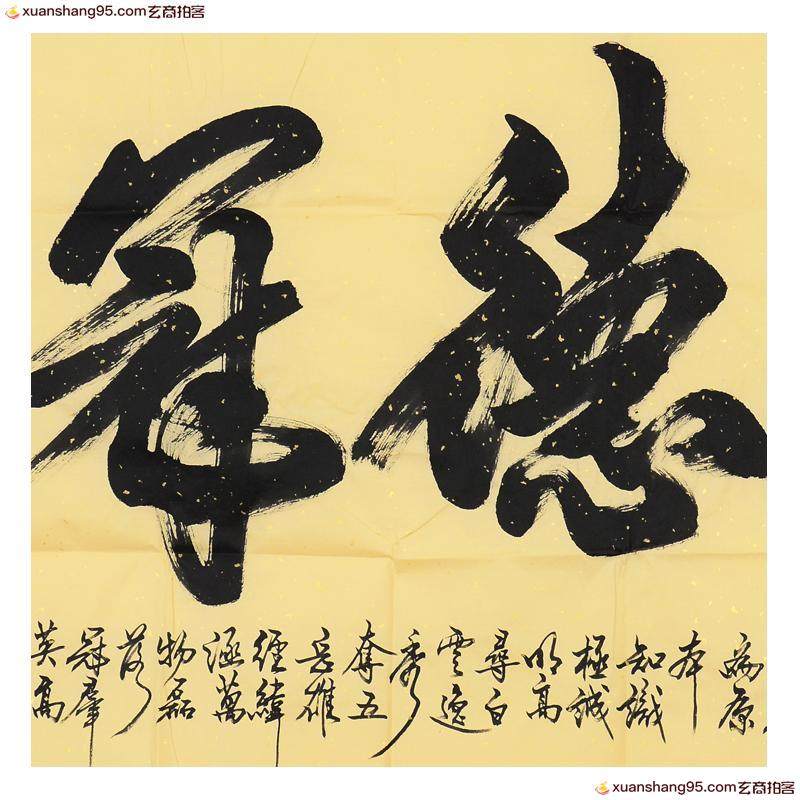 xuanshang95.com玄商拍客
德冠
原
本
知識
極誠
明高
尋白
雲逸
秀
奪五
岳雄
經緯
涵萬
物磊
落
冠羣
英高
xuanshang95.com玄商拍客